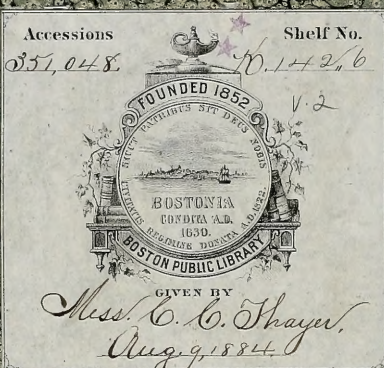 Accessions
Shelf No.
351,048.
K.142,6
V.2
FOUNDED 1852
SICUT PATRIBUS SIT DEUS NOBIS
BOSTONIA
CONDITA A.D.
1630.
CIVITATIS REGIMINE DONATA A.D. 1822.
BOSTON PUBLIC LIBRARY
GIVEN BY
C. C. Thayer.
Aug. 9, 1884.